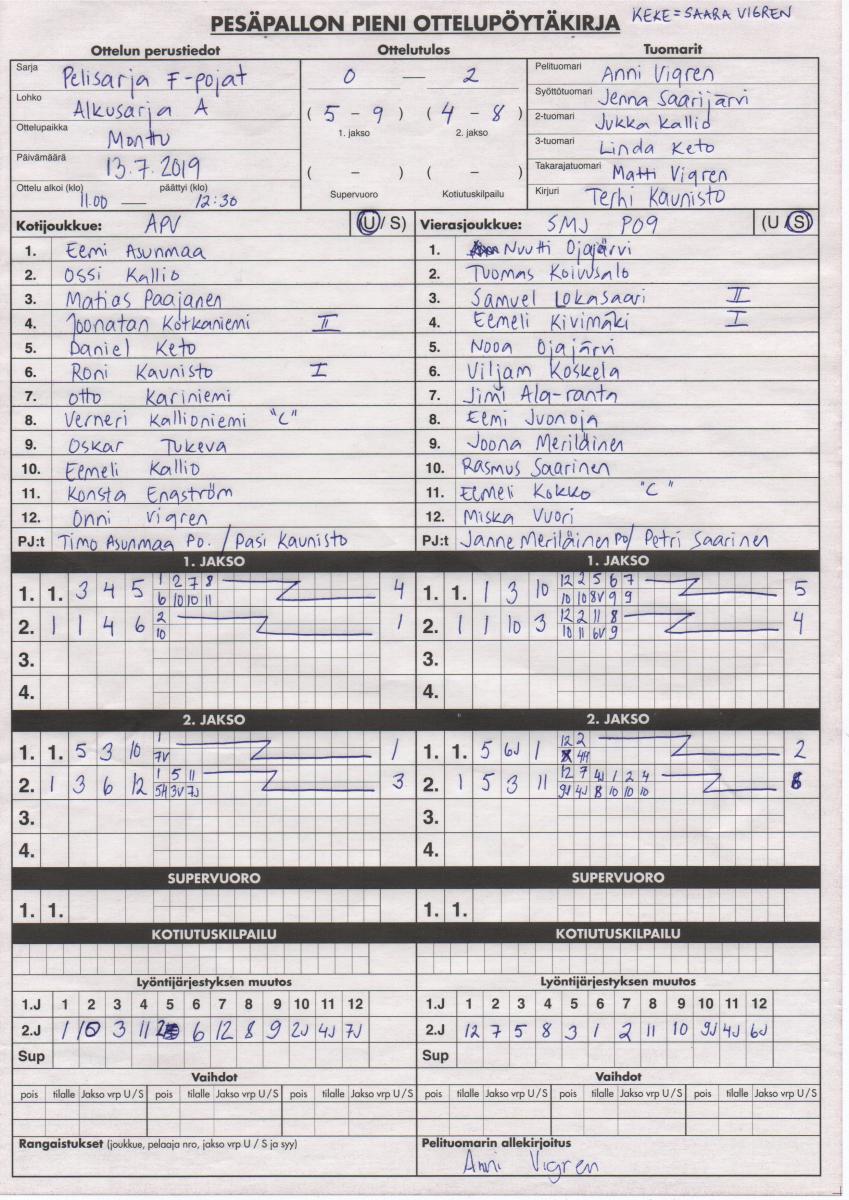 KEKE = SAARA VIGREN
PESÄPALLON PIENI OTTELUPÖYTÄKIRJA
Ottelun perustiedot Ottelutulos Tuomarit
Sarja Pelisarja F-pojat
Lohko Alkusarja A
Ottelupaikka Monttu
Päivämäärä 13.7.2019
Ottelu alkoi (klo) päättyi (klo)
11.00 — 12:30
0 — 2
( 5 - 9 ) ( 4 - 8 )
1. jakso 2. jakso
( - ) ( - )
Supervuoro Kotiutuskilpailu
Pelituomari Anni Vigren
Syöttötuomari Jenna Saarijärvi
2-tuomari Jukka Kallio
3-tuomari Linda Keto
Takarajatuomari Matti Vigren
Kirjuri Terhi Kaunisto
Kotijoukkue: APV (U/ S)
1. Eemi Asunmaa
2. Ossi Kallio
3. Matias Paajanen
4. Joonatan Kotkaniemi II
5. Daniel Keto
6. Roni Kaunisto I
7. Otto Kariniemi
8. Verneri Kallioniemi "C"
9. Oskar Tukeva
10. Eemeli Kallio
11. Konsta Engström
12. Onni Vigren
PJ:t Timo Asunmaa Po. / Pasi Kaunisto
Vierasjoukkue: SMJ P09 (U / S)
1. Nuutti Ojajärvi
2. Tuomas Koivusalo
3. Samuel Lokasaari II
4. Eemeli Kivimäki I
5. Nooa Ojajärvi
6. Viljam Koskela
7. Jimi Ala-ranta
8. Eemi Juonoja
9. Joona Meriläinen
10. Rasmus Saarinen
11. Eemeli Kokko "C"
12. Miska Vuori
PJ:t Janne Meriläinen PO/ Petri Saarinen
1. JAKSO 1. JAKSO
1. 1. 3 4 5 1 2 7 8 4
6 10 10 11
2. 1 1 4 6 2 1
10
3.
4.
1. 1. 1 3 10 12 2 5 6 7 5
10 10 8V 9 9
2. 1 1 10 3 12 2 11 8 4
10 11 6V 9
3.
4.
2. JAKSO 2. JAKSO
1. 1. 5 3 10 1 1
7V
2. 1 3 6 12 1 5 11 3
5H 3V 7J
3.
4.
1. 1. 5 6J 1 12 2 2
4H
2. 1 5 3 11 12 7 4J 1 2 4 6
9J 4J 8 10 10 10
3.
4.
SUPERVUORO SUPERVUORO
1. 1. 1. 1.
KOTIUTUSKILPAILU KOTIUTUSKILPAILU
Lyöntijärjestyksen muutos Lyöntijärjestyksen muutos
1.J 1 2 3 4 5 6 7 8 9 10 11 12
2.J 1 10 3 11 2 6 12 8 9 2J 4J 7J
Sup
1.J 1 2 3 4 5 6 7 8 9 10 11 12
2.J 12 7 5 8 3 1 2 11 10 9J 4J 6J
Sup
Vaihdot Vaihdot
pois tilalle Jakso vrp U / S pois tilalle Jakso vrp U / S pois tilalle Jakso vrp U / S
pois tilalle Jakso vrp U / S pois tilalle Jakso vrp U / S pois tilalle Jakso vrp U / S
Rangaistukset (joukkue, pelaaja nro, jakso vrp U / S ja syy)
Pelituomarin allekirjoitus
Anni Vigren